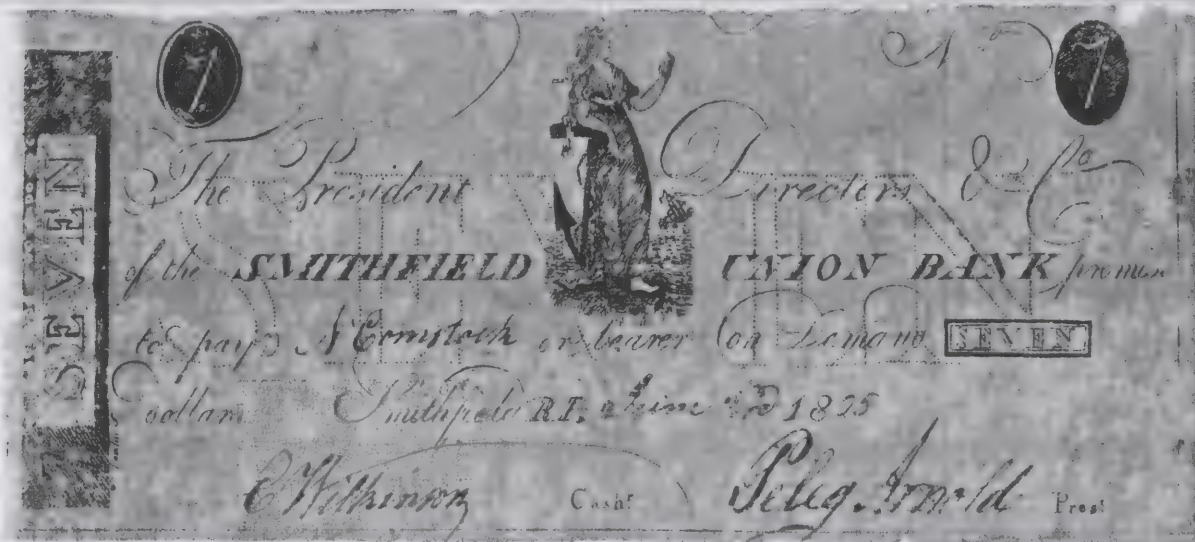 7 No 7
SEVEN
The President Directors & Co
of the SMITHFIELD UNION BANK promise
to pay Comstock or bearer on Demand SEVEN
Dollars Smithfield R.I. 1805
C Wilkinson Cashr Peleg Arnold Prest